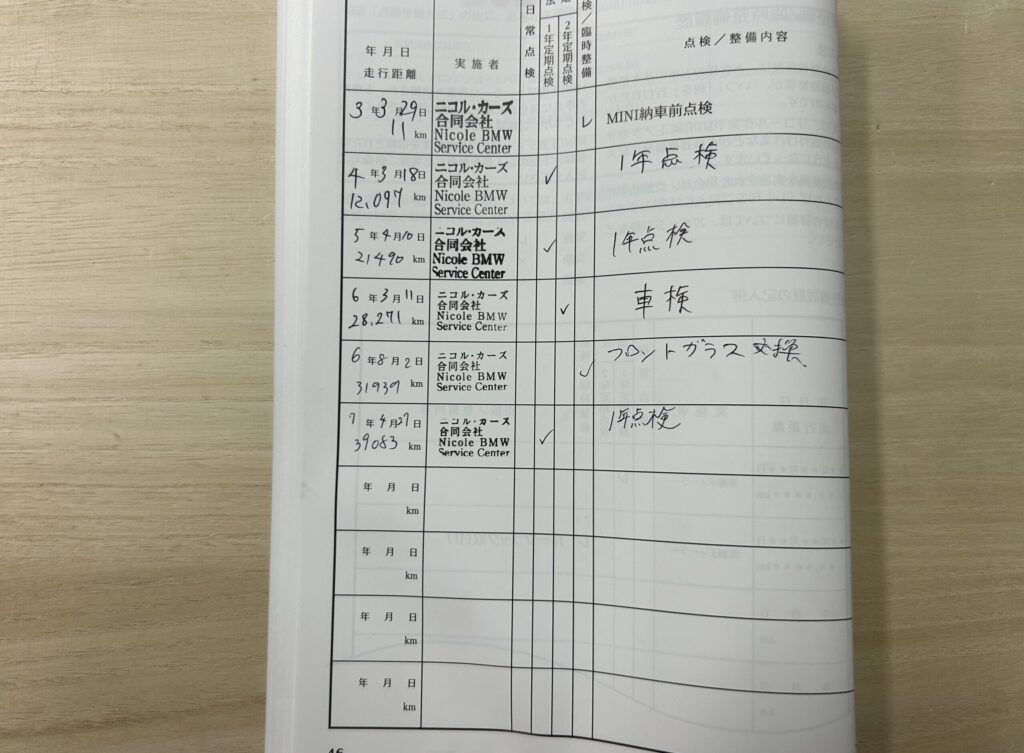 年月日
走行距離
実施者
日常点検
法定
1年定期点検
2年定期点検
検/臨時整備
点検/整備内容
3年3月29日
11 km
ニコル・カーズ
合同会社
Nicole BMW
Service Center
レ
MINI納車前点検
4年3月18日
12,097 km
ニコル・カーズ
合同会社
Nicole BMW
Service Center
✓
1年点検
5年4月10日
21490 km
ニコル・カーズ
合同会社
Nicole BMW
Service Center
✓
1年点検
6年3月11日
28,271 km
ニコル・カーズ
合同会社
Nicole BMW
Service Center
✓
車検
6年8月2日
31939 km
ニコル・カーズ
合同会社
Nicole BMW
Service Center
✓
フロントガラス交換
7年4月27日
39083 km
ニコル・カーズ
合同会社
Nicole BMW
Service Center
✓
1年点検
年月日
km
年月日
km
年月日
km
年月日
km
46